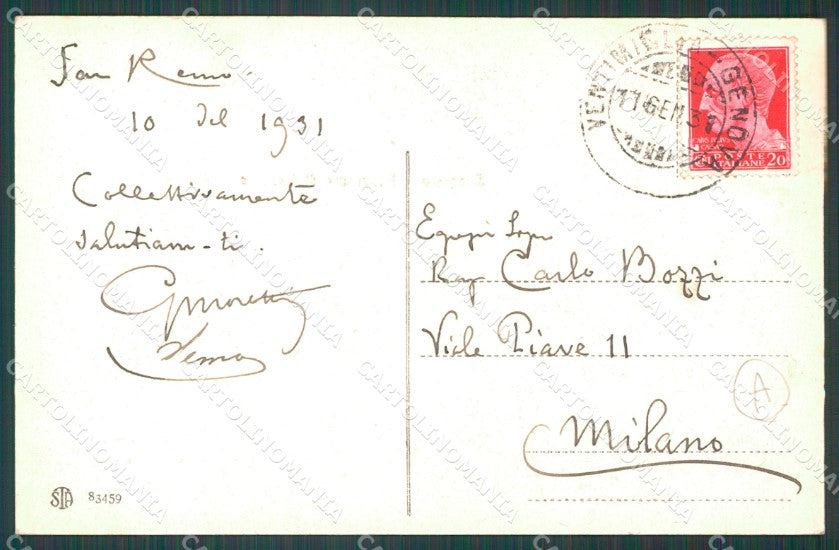 San Remo
10 del 1931
Collettivamente
salutiam-ti.
GMoretti
VENTIMIGLIA - GENOVA
11 GEN 31
POSTE
ITALIANE 20
Rag Carlo Bozzi
Viale Piave 11
Milano
A
STA 83459
CARTOLINOMANIA